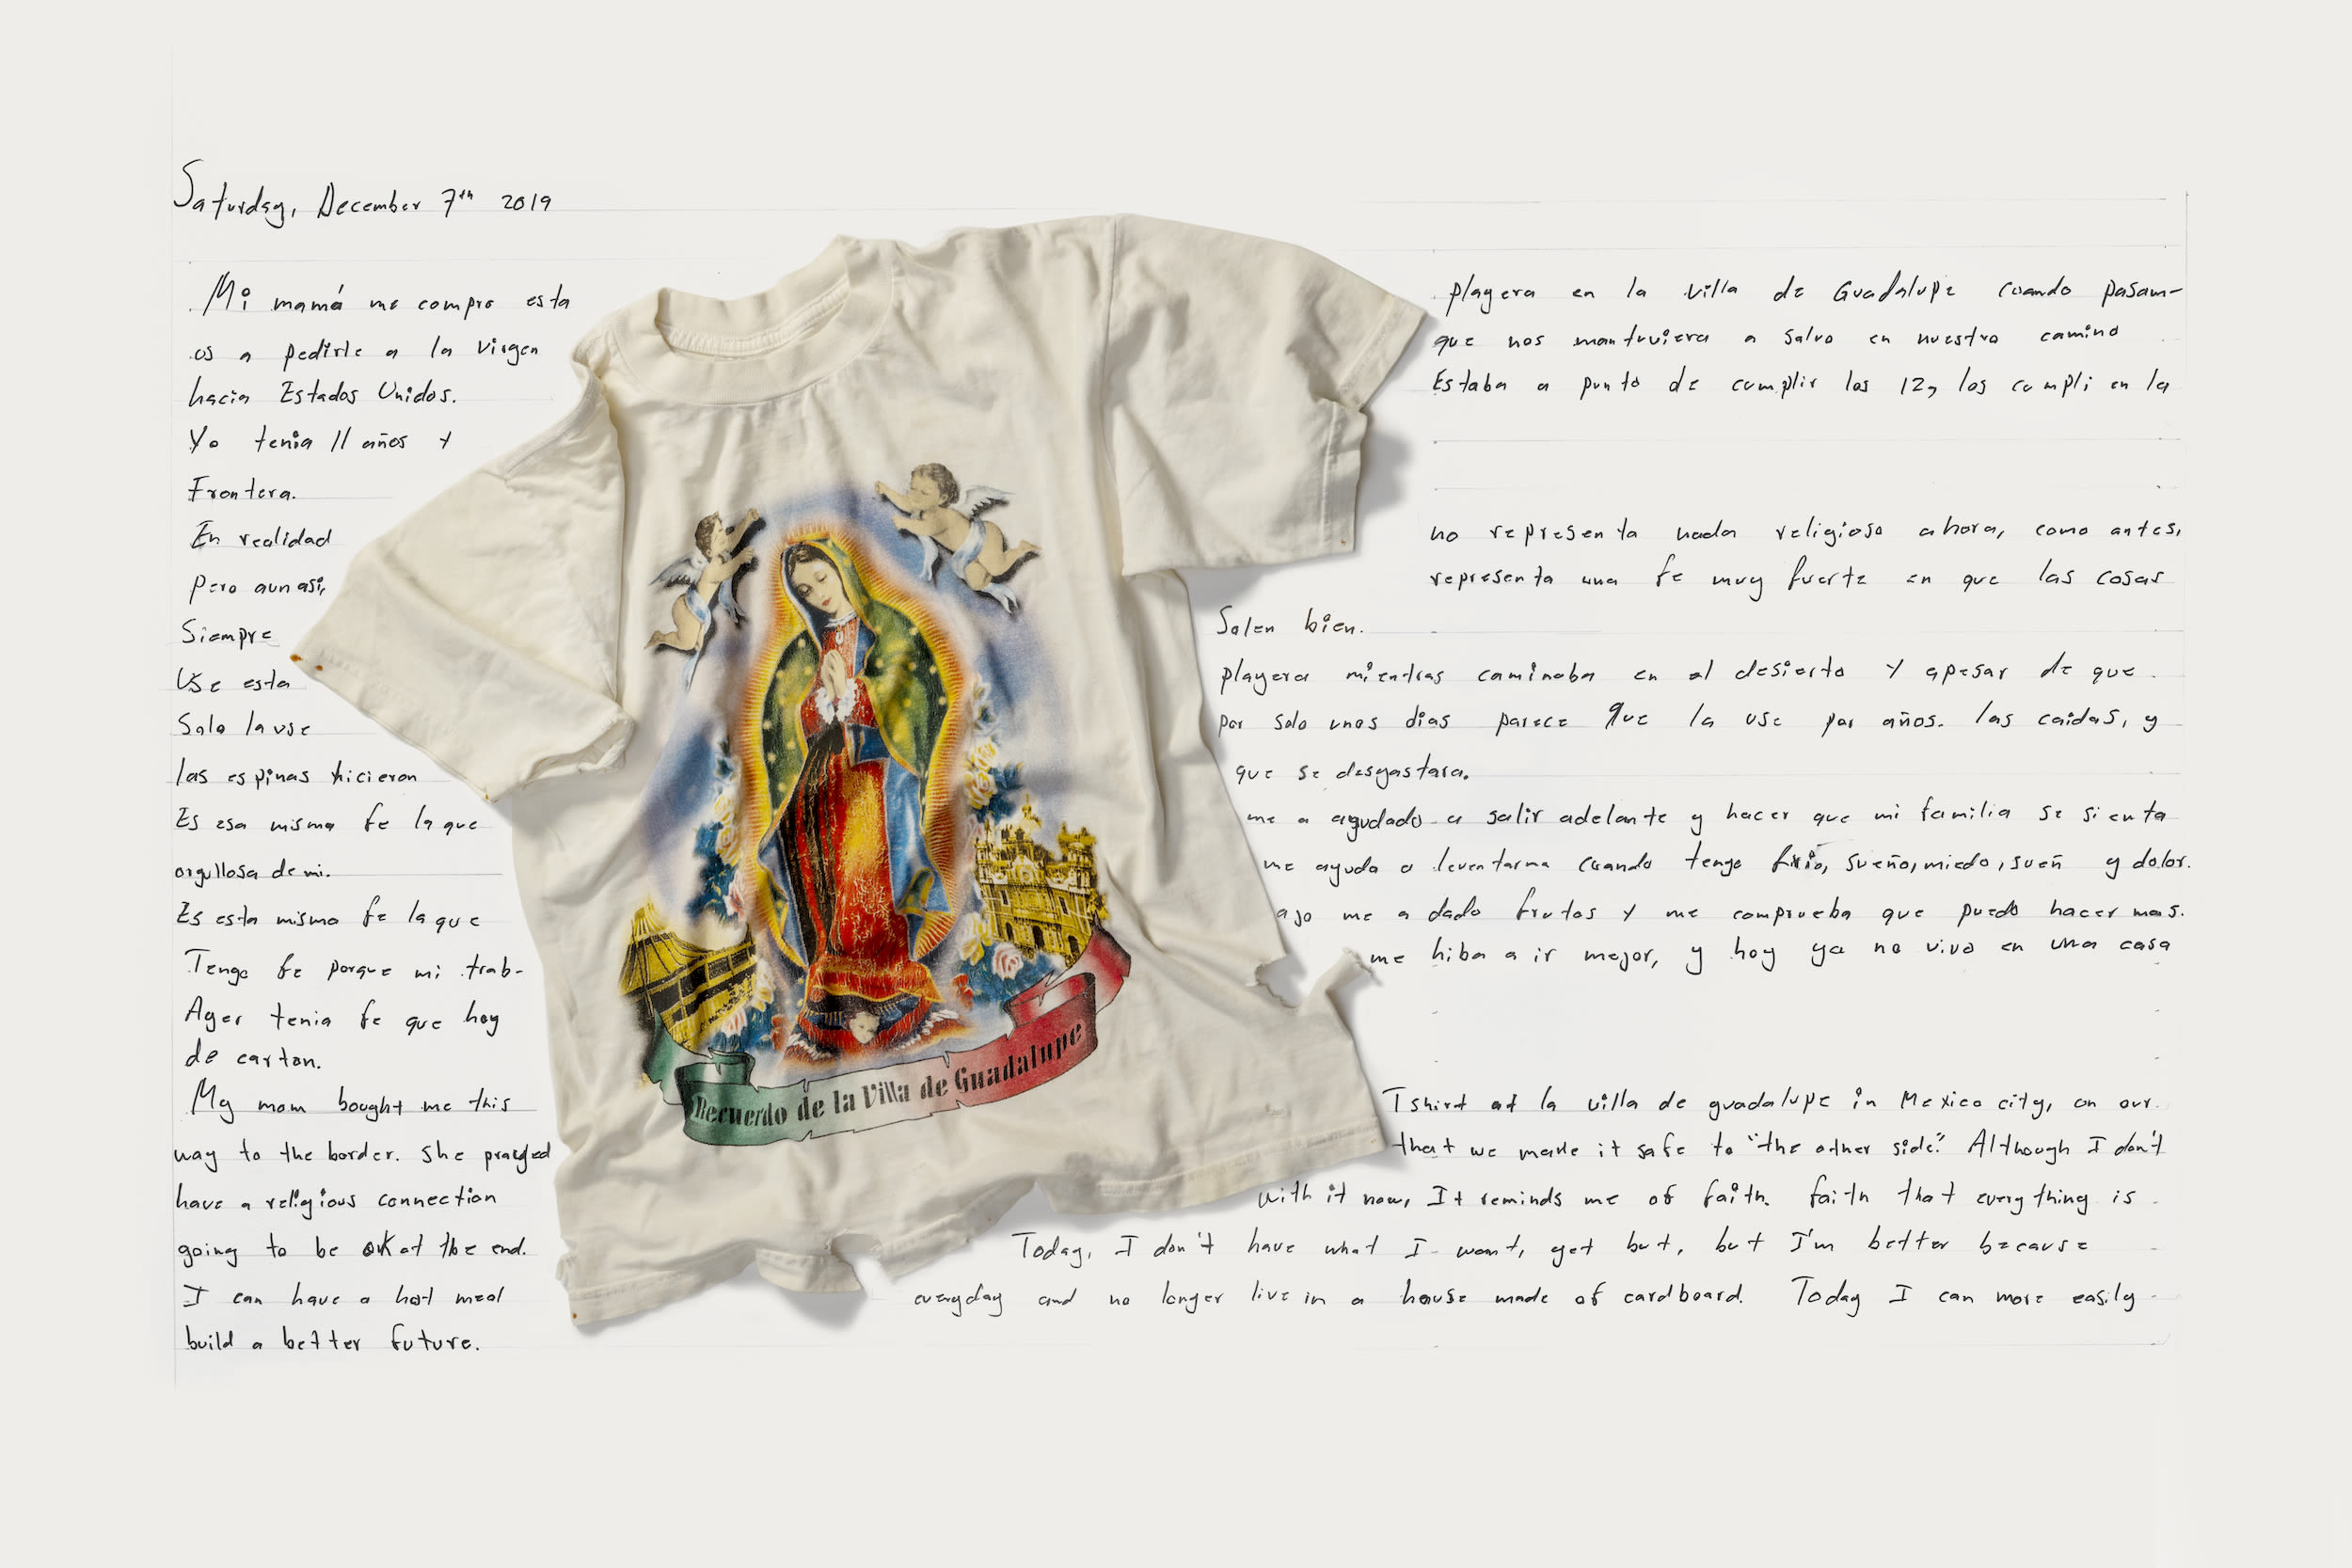 Saturday, December 7th 2019
Mi mamá me compro esta playera en la villa de Guadalupe cuando pasam-
os a pedirle a la virgen que nos mantuviera a salvo en nuestro camino
hacia Estados Unidos. Estaba a punto de cumplir los 12, los cumpli en la
Yo tenia 11 años y
Frontera.
En realidad no representa nada religioso ahora, como antes,
Pero aun asi, representa una fe muy fuerte en que las cosas
Siempre Salen bien.
Use esta playera mientras caminaba en el desierto y apesar de que
Solo la use por solo unos dias parece que la use por años. las caidas, y
las espinas hicieron que se desgastara.
Es esa misma fe la que me a ayudado a salir adelante y hacer que mi familia se sienta
orgullosa de mi. me ayuda a levantarma cuando tengo frio, sueño, miedo, sueñ y dolor.
Es esta misma fe la que
Tengo fe porque mi trab- ajo me a dado frutos y me comprueba que puedo hacer mas.
Ayer tenia fe que hoy me hiba a ir mejor, y hoy ya no vivo en una casa
de carton.
My mom bought me this Tshirt at la villa de guadalupe in Mexico city, on our
way to the border. she prayed that we made it safe to "the other side." Although I don't
have a religious connection with it now, It reminds me of faith. faith that everything is
going to be ok at the end. Today, I don't have what I want, yet but, but I'm better because
I can have a hot meal everyday and no longer live in a house made of cardboard. Today I can more easily
build a better future.
Recuerdo de la Villa de Guadalupe